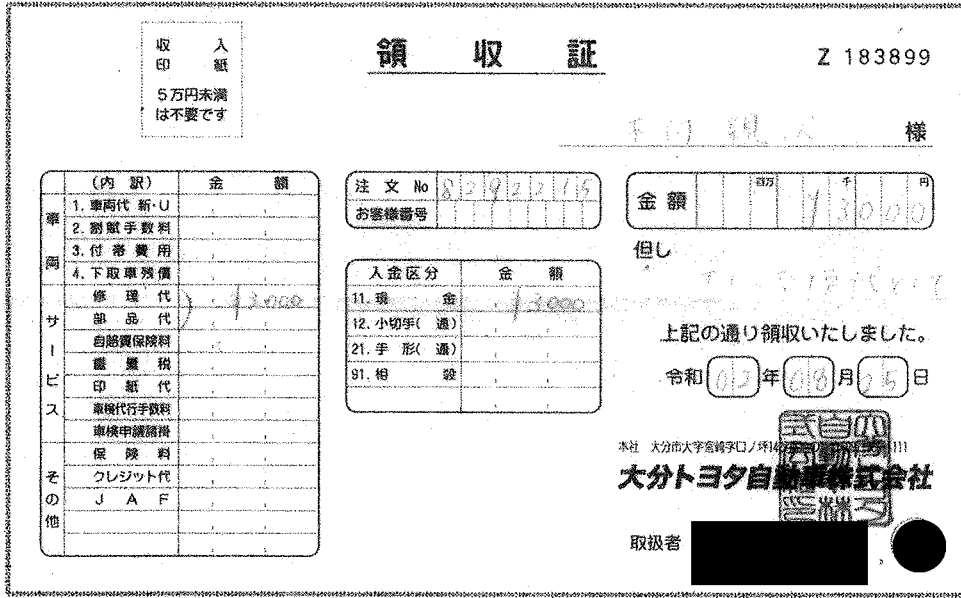 収入
印紙
5万円未満
は不要です
領収証
Z 183899
様
(内訳) 金額
車両
1. 車両代 新・U
2. 割賦手数料
3. 付帯費用
4. 下取車残債
サービス
修理代 ¥3,000
部品代
自賠責保険料
重量税
印紙代
車検代行手数料
車検申請諸掛
その他
保険料
クレジット代
JAF
注文No 8292215
お客様番号
入金区分 金額
11. 現金 ¥3,000
12. 小切手( 通)
21. 手形( 通)
91. 相殺
金額 百万 千 円
¥3000
但し
上記の通り領収いたしました。
令和02年08月25日
本社 大分市大字宮崎字口ノ坪
大分トヨタ自動車株式会社
取扱者